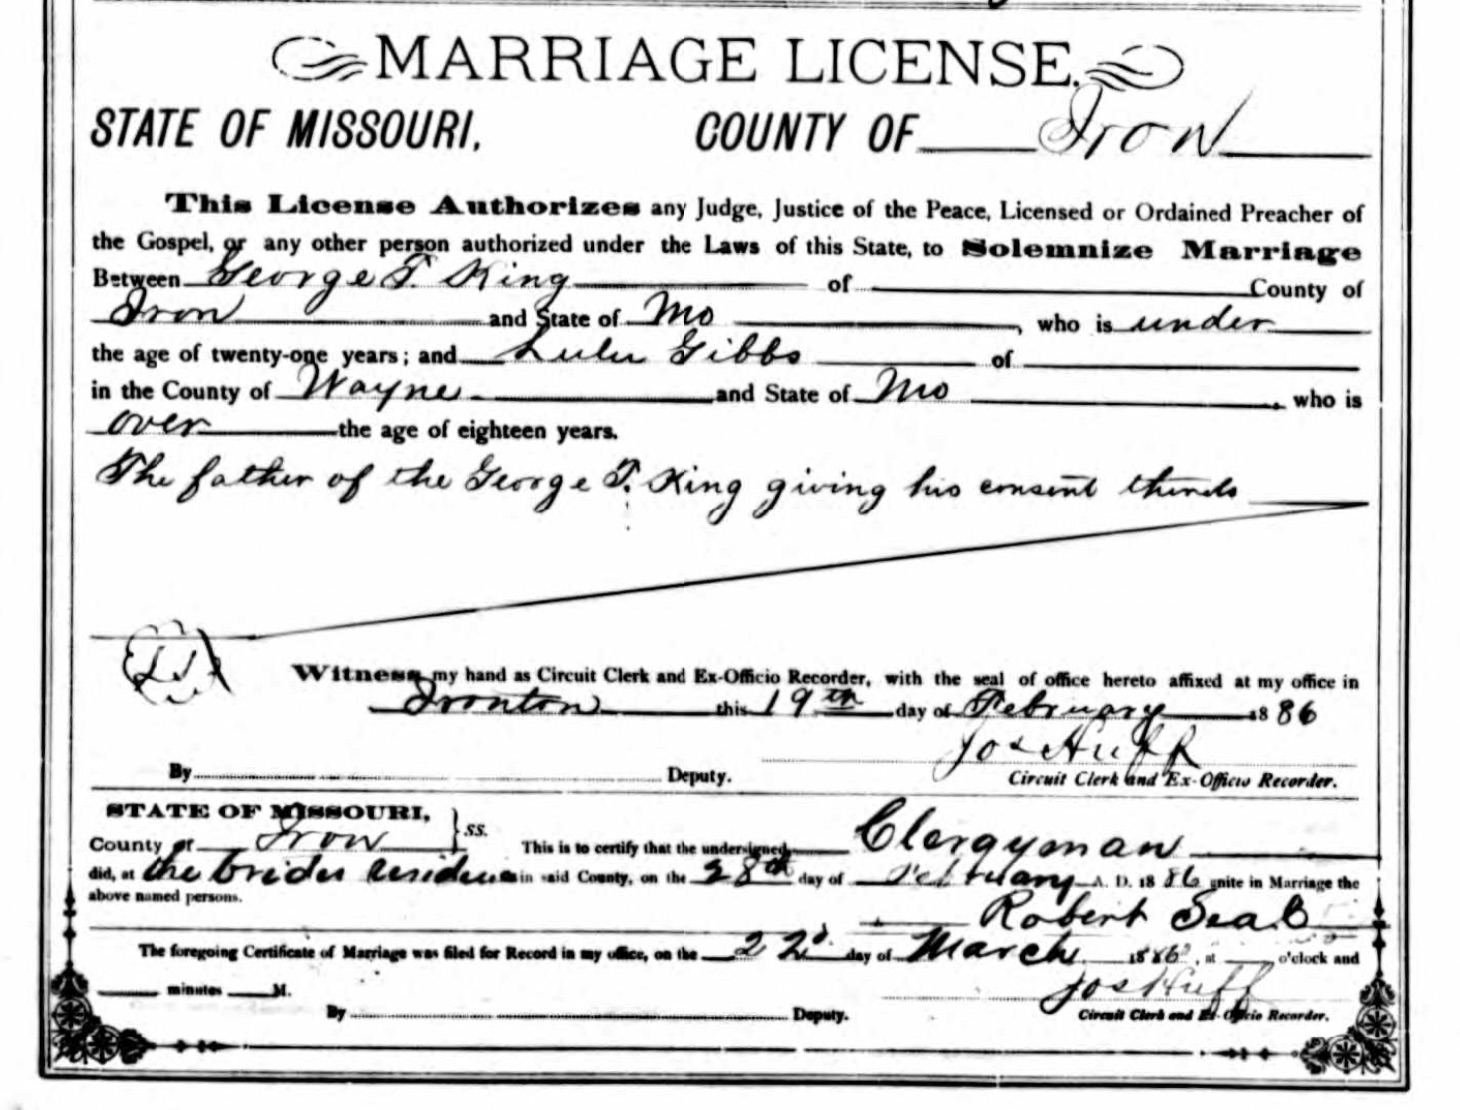 MARRIAGE LICENSE.
STATE OF MISSOURI, COUNTY OF Iron
This License Authorizes any Judge, Justice of the Peace, Licensed or Ordained Preacher of
the Gospel, or any other person authorized under the Laws of this State, to Solemnize Marriage
Between George T. King of County of
Iron and State of Mo , who is under
the age of twenty-one years; and Lulu Gibbs of
in the County of Wayne and State of Mo , who is
over the age of eighteen years.
The father of the George T. King giving his consent
Witness my hand as Circuit Clerk and Ex-Officio Recorder, with the seal of office hereto affixed at my office in
Ironton this 19th day of February 1886
Jos Huff
By Deputy. Circuit Clerk and Ex-Officio Recorder.
STATE OF MISSOURI,
County of Iron } ss. This is to certify that the undersigned Clergyman
did, at the brides residence in said County, on the 28th day of February A. D. 1886 unite in Marriage the
above named persons.
Robert
The foregoing Certificate of Marriage was filed for Record in my office, on the 22d day of March 1886, at o'clock and
minutes M. Jos Huff
By Deputy. Circuit Clerk and Ex-Officio Recorder.